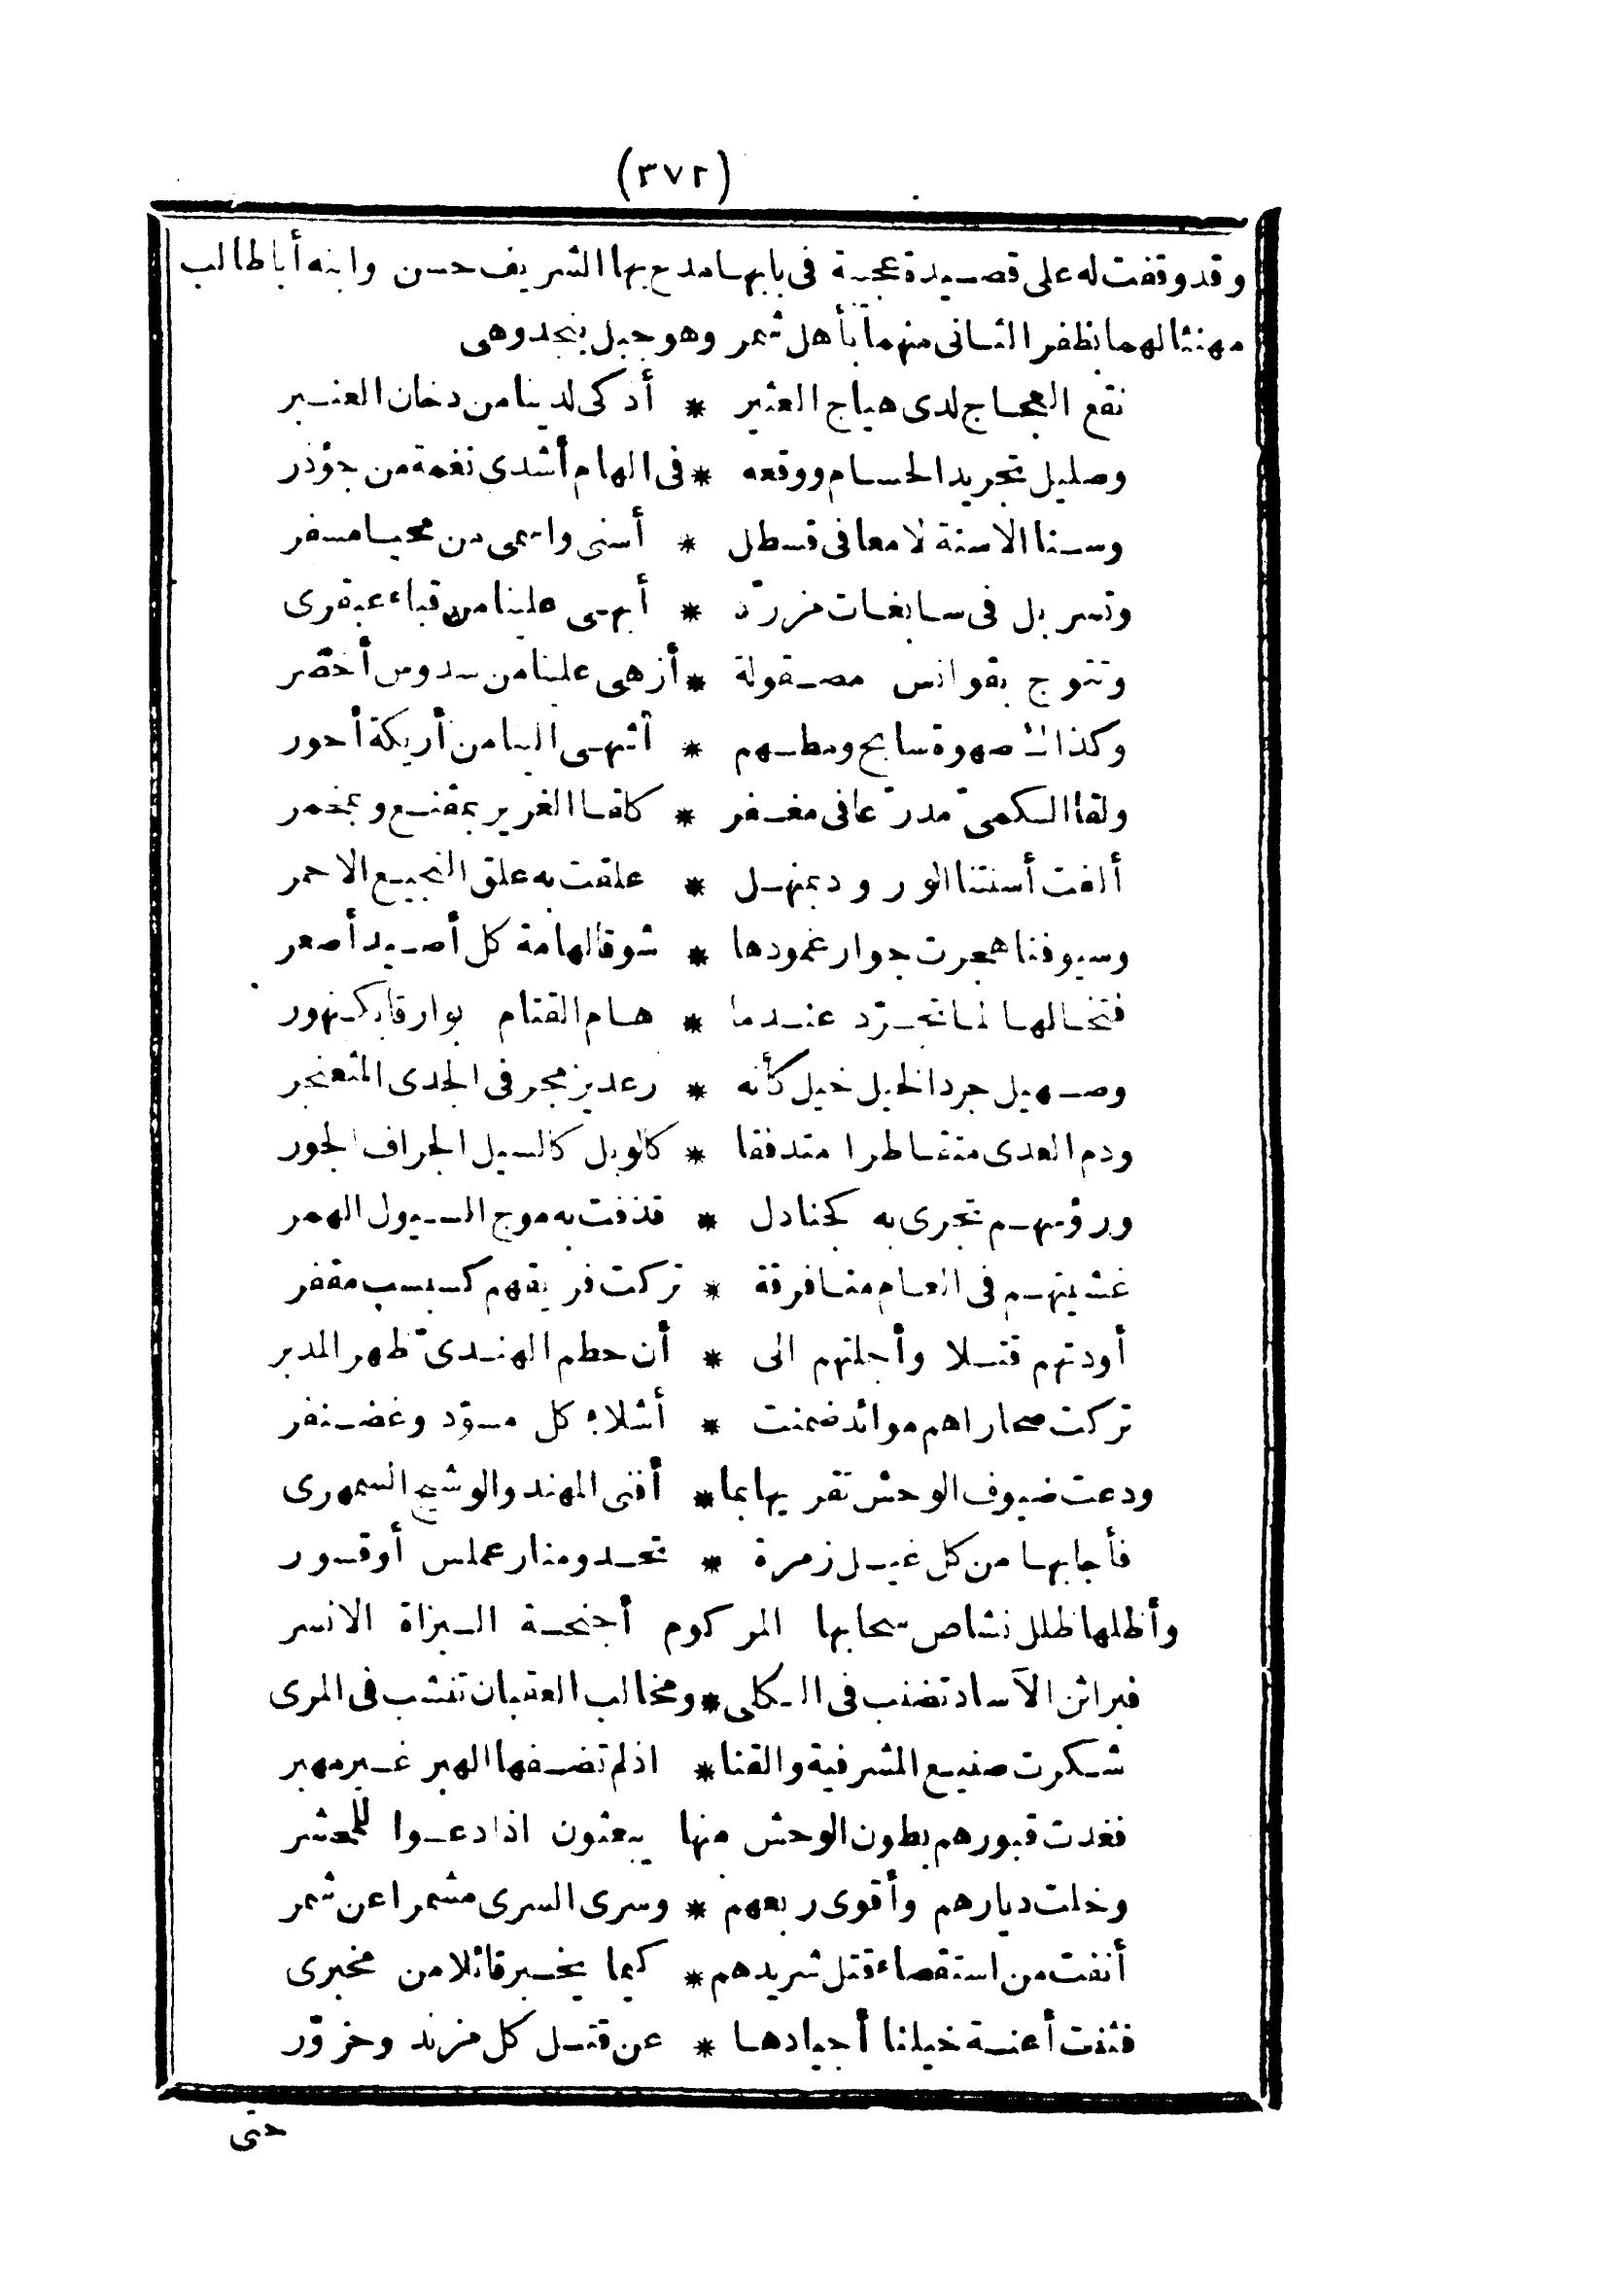 (٣٧٢)
وقد وقفت له على قصيدة عجيبة في بابها مدح بها الشريف حسن وابنه أبا طالب
مهنئا لهما بظفر الثانى منهما بأهل شمر وهو جبل بنجد وهى
نقع العجاج لدى هياج العثير * أذكى لدينا من دخان العنبر
وصليل تجريد الحسام ووقعه * فى الهام أشدى نغمة من جؤذر
وسنا الاسنة لامعا فى قسطل * أسنى واسمى من محيا مسفر
وتسربل فى سابغات مزرّد * أبهى علينا من قباء عبقرى
وتتوج بقوانس مصقولة * أزهى علينا من سدوس أخضر
وكذاك صهوة سابح ومطهم * أشهى الينا من أريكة أحور
ولقا الكمىّ مدرّعا فى مغفر * كلقا الغرير بمقنع وبمخمر
ألفت أسنتنا الورود بمنهل * علقت به علق النجيع الاحمر
وسيوفنا هجرت جوار غمودها * شوقا لهامة كل أصيد أصعر
فتخالها لما تجرّد عندما * هام القتام بوارقا بكنهور
وصهيل جرد الخيل خيل كأنه * رعد يزمجر فى الجدى المثعنجر
ودم العدى متقاطرا متدفقا * كالوبل كالسيل الجراف الجور
ورؤسهم تجرى به كجنادل * قذفت به موج السيول الهمر
غشيتهم فى العام منا فرقة * تركت فريقهم كسبسب مقفر
أودتهم قتلا وأجلتهم الى * أن حطم الهندىّ ظهر المدبر
تركت صحاراهم موائد ضمنت * أشلاء كل مسوّد وغضنفر
ودعت ضيوف الوحش تقريها بما * أفنى المهند والوشيج السمهرى
فأجابها من كل غيل زمرة * تحدو منار عملس أو قسور
وأظلها ظلل نشاص سحابها المركوم أجنحة البزاة الانسر
فبراثن الآساد تضنب فى الكلى * ومخالب العقبان تنشب فى المرى
شكرت صنيع المشرفية والقنا * اذ لم تضفها الهبر غير مهبر
فغدت قبورهم بطون الوحش منها يبعثون اذا دعوا للمحشر
وخلت ديارهم وأقوى ربعهم * وسرى السرى مشمرا عن شمر
أنفت من استقصاء قتل شريدهم * كيما يخبر قائلا من مخبرى
فثنت أعنة خيلنا أجيادها * عن قتل كل مزند وحزوّر
حتى